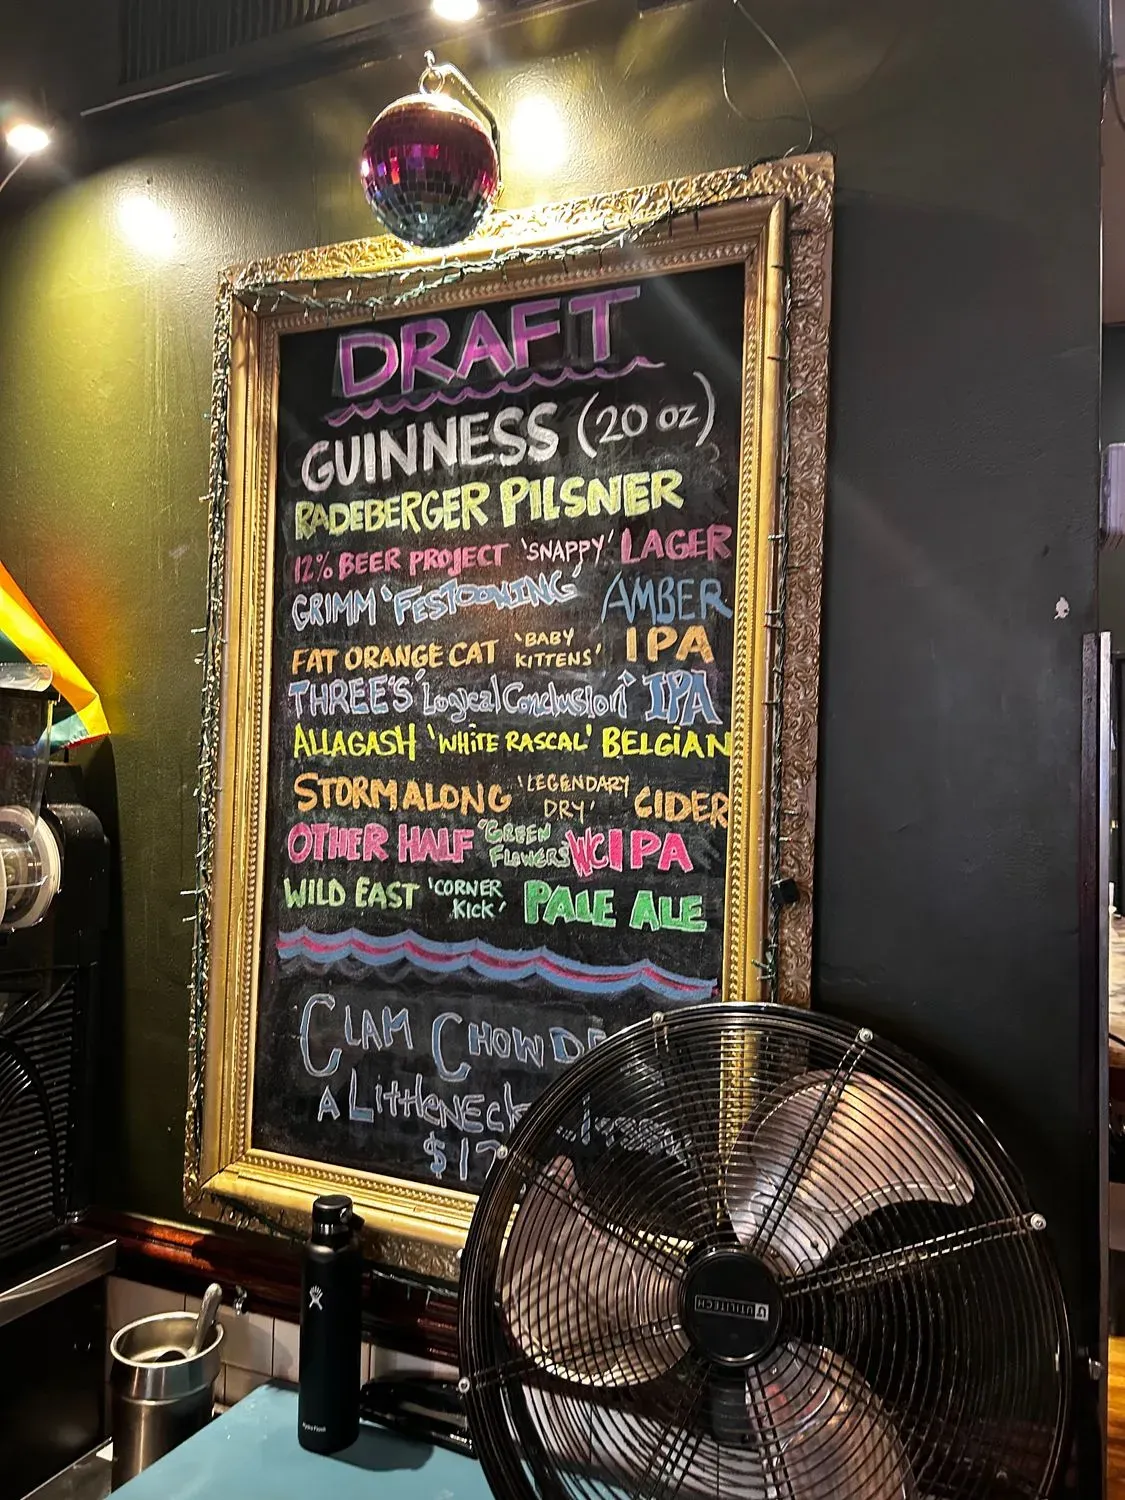 DRAFT
GUINNESS (20 oz)
RADEBERGER PILSNER
12% BEER PROJECT 'SNAPPY' LAGER
GRIMM 'FESTOONING' AMBER
FAT ORANGE CAT 'BABY KITTENS' IPA
THREE'S 'Logical Conclusion' IPA
ALLAGASH 'WHITE RASCAL' BELGIAN
STORMALONG 'LEGENDARY DRY' CIDER
OTHER HALF 'GREEN FLOWERS' WC IPA
WILD EAST 'CORNER KICK' PALE ALE
CLAM CHOWDE
& LittleNECK
$17
UTILITECH
Hydro Flask